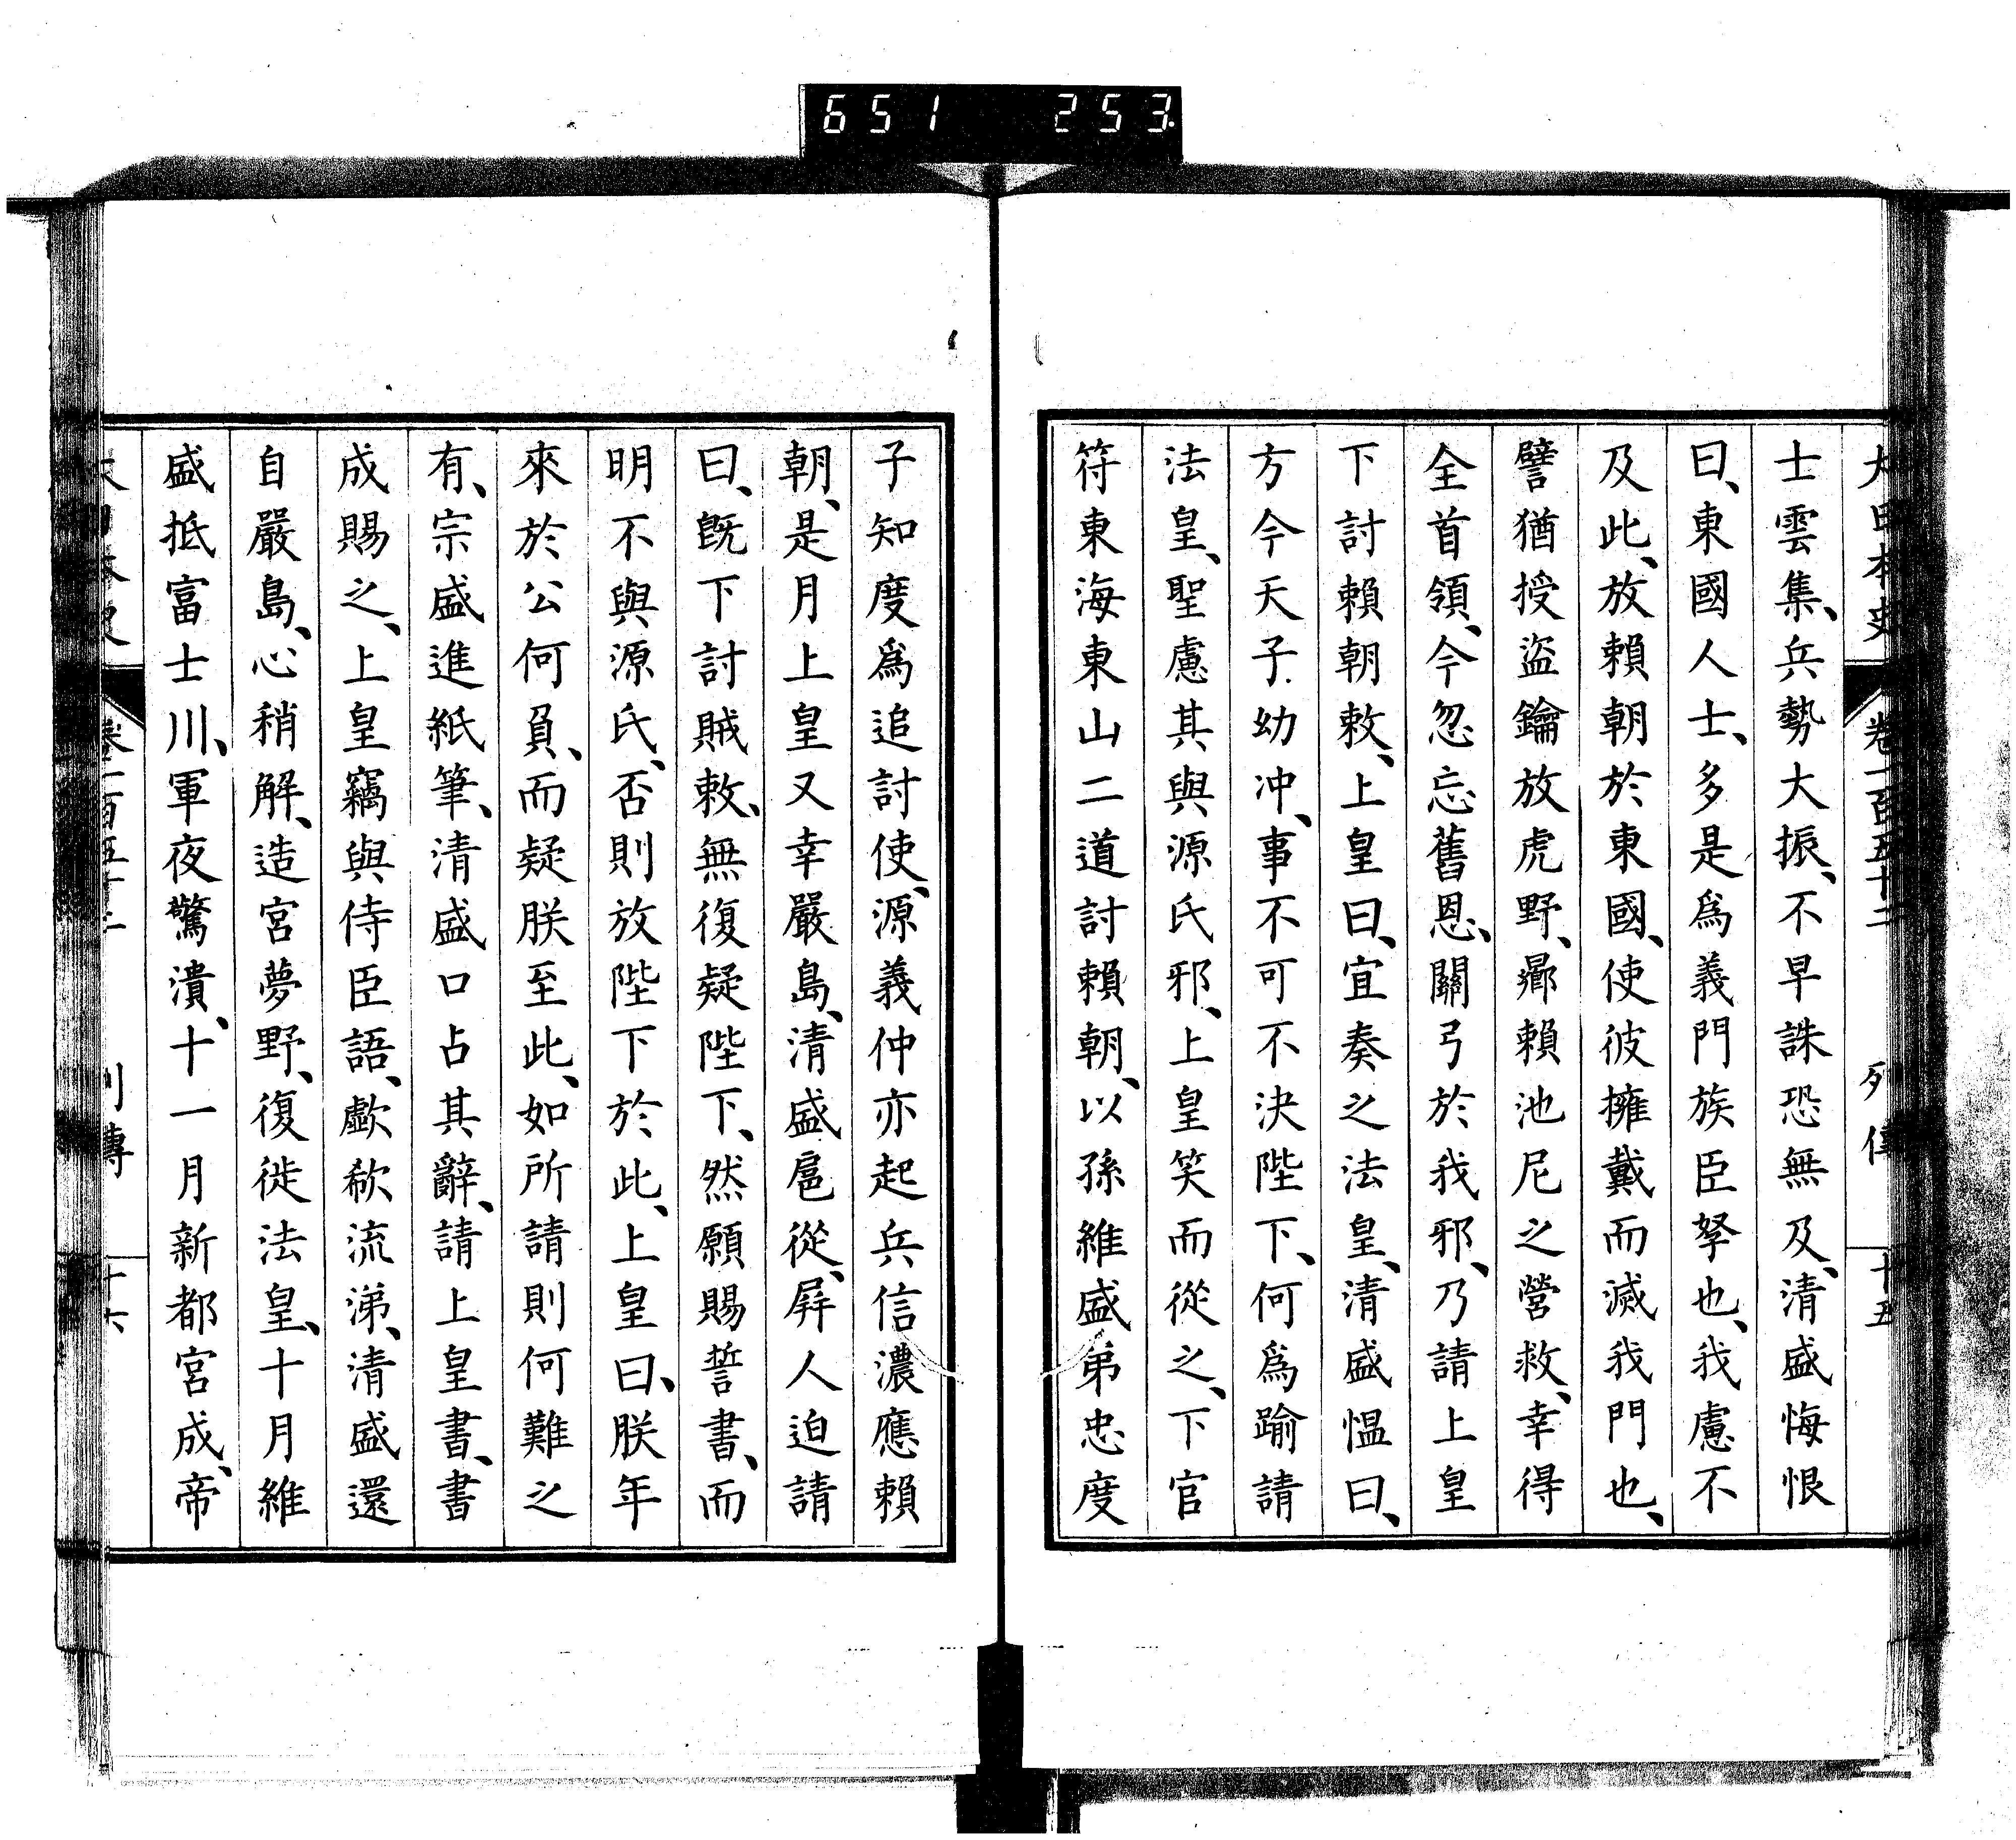 651 253
大日本史 卷一百五十二 列傳 十五
士雲集、兵勢大振、不早誅恐無及、清盛悔恨
曰、東國人士、多是爲義門族臣孥也、我慮不
及此、放賴朝於東國、使彼擁戴而滅我門也、
譬猶授盜鑰放虎野、曏賴池尼之營救、幸得
全首領、今忽忘舊恩、關弓於我邪、乃請上皇
下討賴朝敕、上皇曰、宜奏之法皇、清盛愠曰、
方今天子幼冲、事不可不決陛下、何爲踰請
法皇、聖慮其與源氏邪、上皇笑而從之、下官
符東海東山二道討賴朝、以孫維盛弟忠度
子知度爲追討使、源義仲亦起兵信濃應賴
朝、是月上皇又幸嚴島、清盛扈從、屛人迫請
曰、旣下討賊敕、無復疑陛下、然願賜誓書、而
明不與源氏、否則放陛下於此、上皇曰、朕年
來於公何負、而疑朕至此、如所請則何難之
有、宗盛進紙筆、清盛口占其辭、請上皇書、書
成賜之、上皇竊與侍臣語、歔欷流涕、清盛還
自嚴島、心稍解、造宮夢野、復徙法皇、十月維
盛抵富士川、軍夜驚潰、十一月新都宮成、帝
大日本史 卷一百五十二 列傳 十六